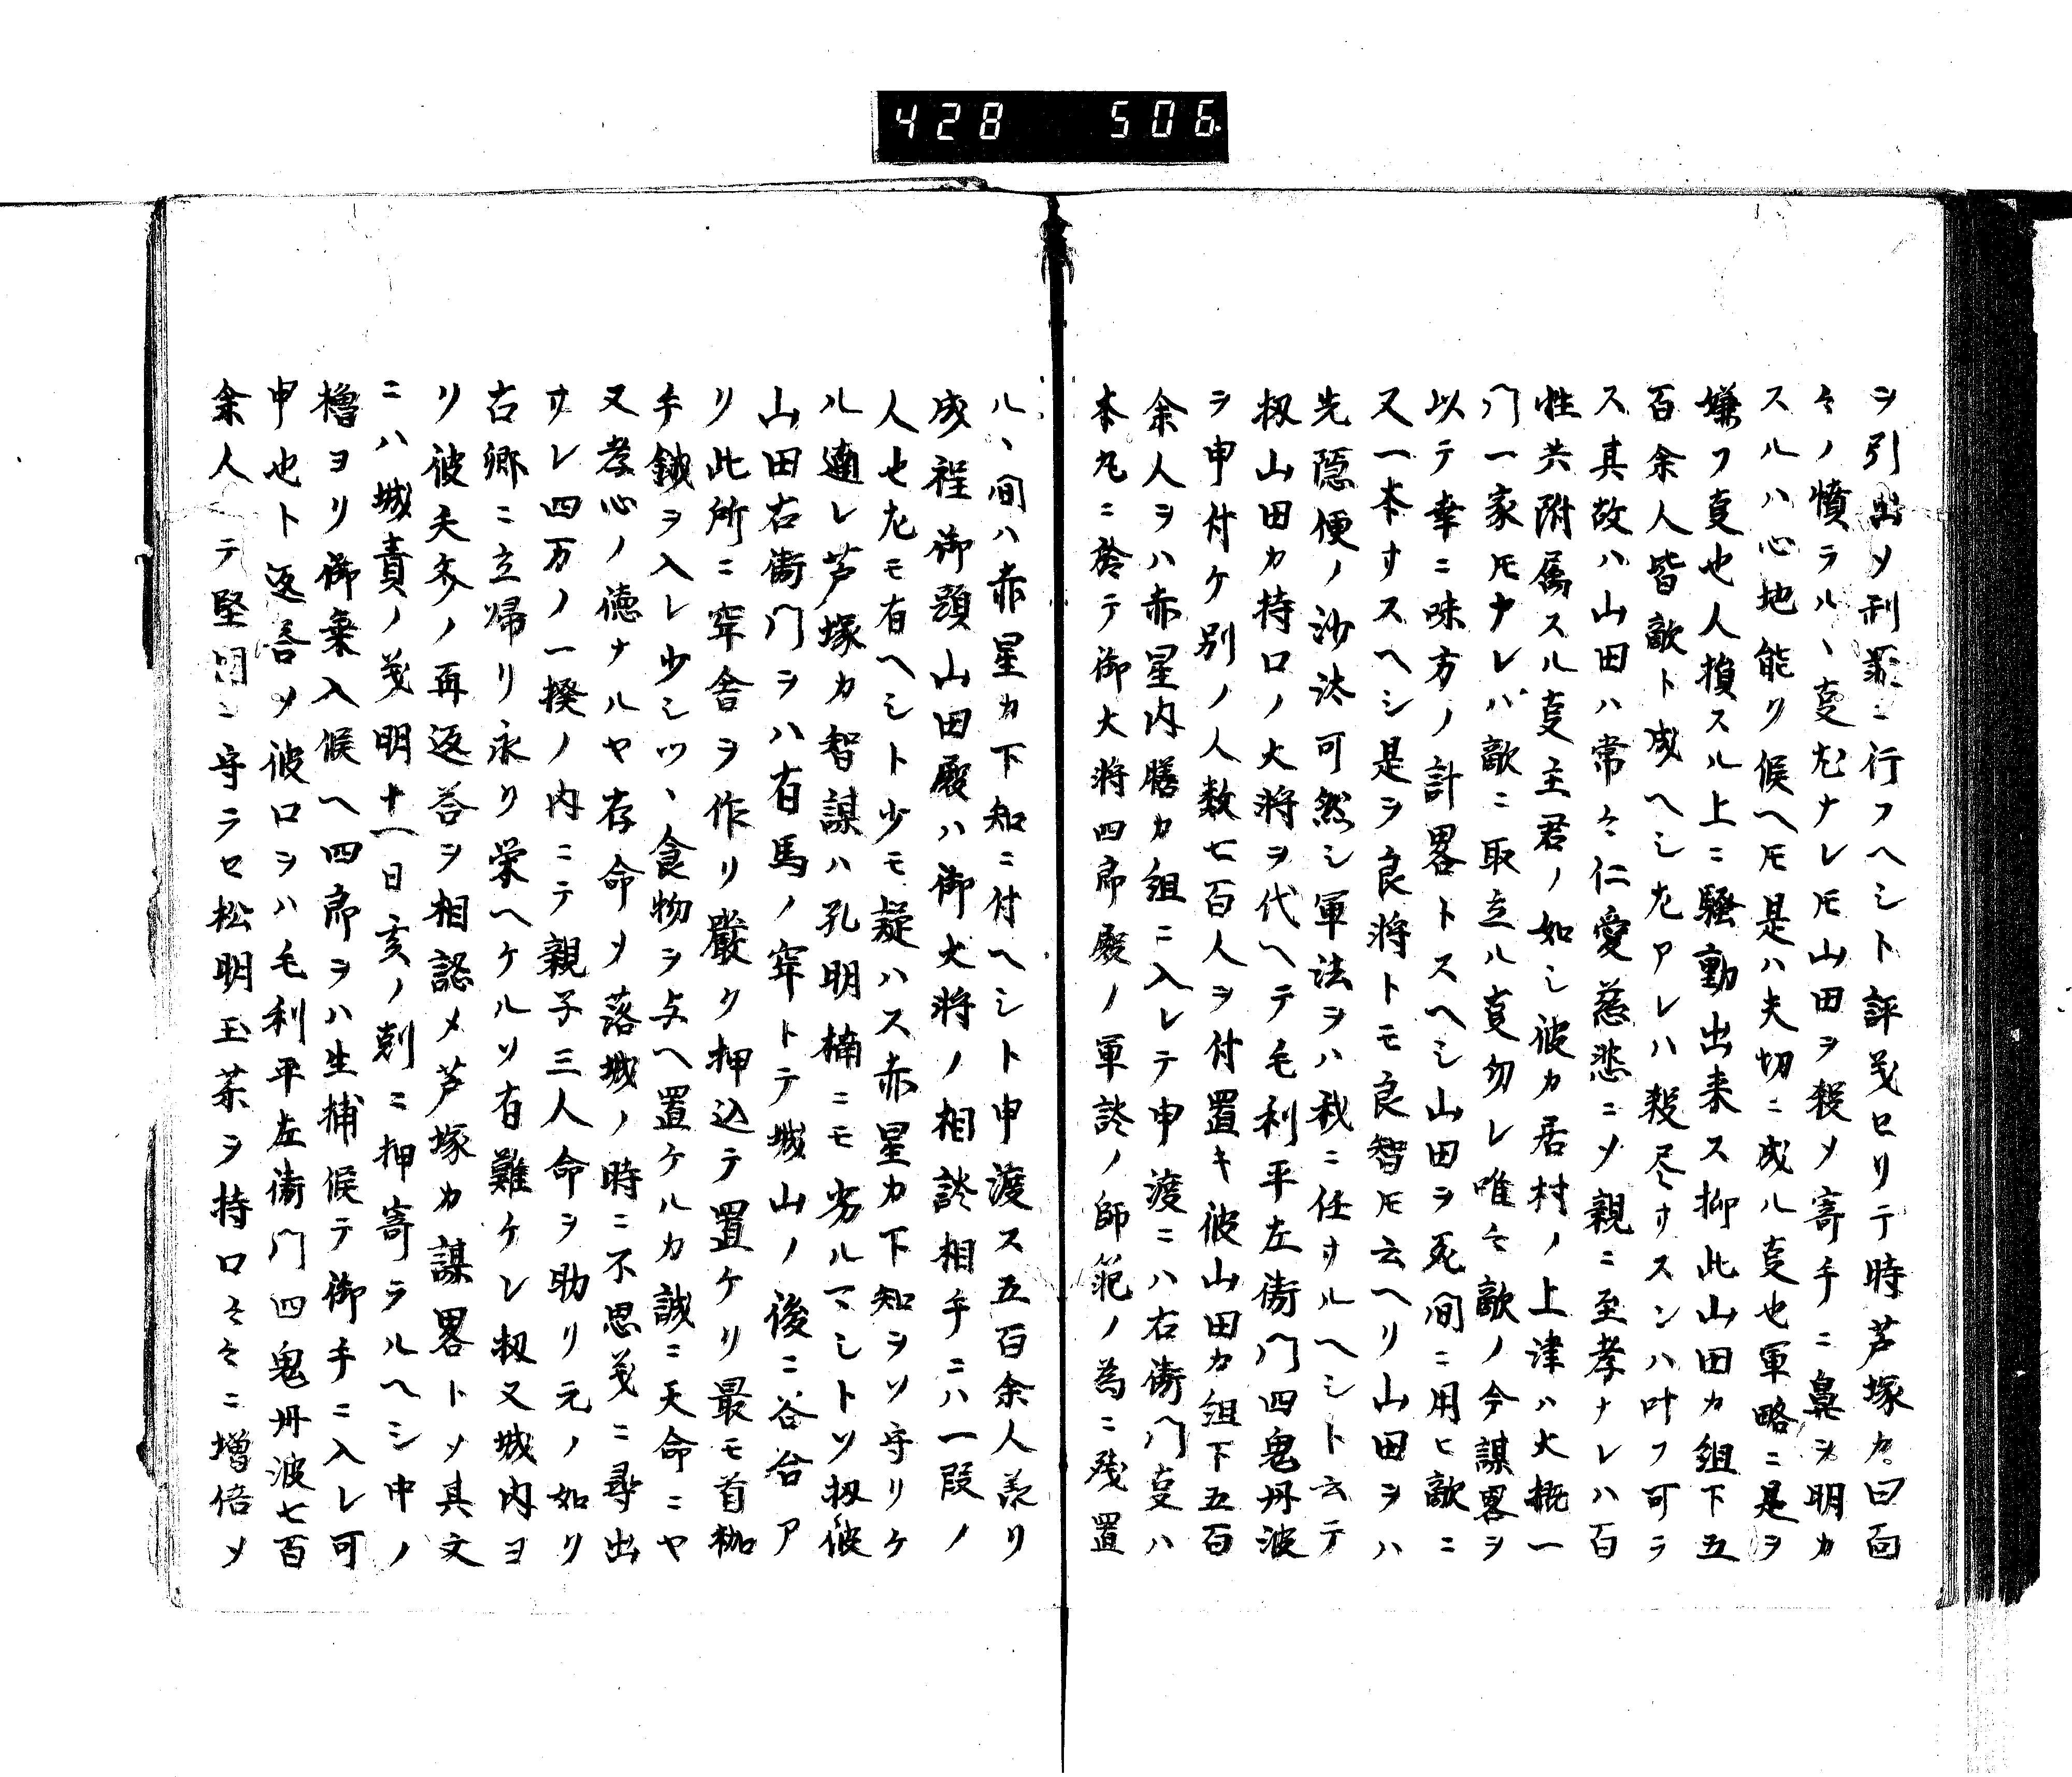 428 506
ヲ引出〆刑罪ニ行フヘシト評義セリテ時芦塚カ曰面
々ノ憤ラル丶叓尤ナレ𪜈山田ヲ殺〆寄手ニ鼻ヲ明カ
スルハ心地能リ候ヘ𪜈是ハ大切ニ成ル叓也軍略ニ是ヲ
嫌フ叓也人損スル上ニ騒動出来ス抑此山田カ組下五
百余人皆敵ト成ヘシ尤アレハ殺尽サスンハ叶フ可ラ
ス其故ハ山田ハ常々仁愛慈悲ニ〆親ニ至孝ナレハ百
性共附属スル叓主君ノ如シ彼カ居村ノ上津ハ大概一
門一家𪜈ナレハ敵ニ取立ル叓勿レ唯今敵ノ今謀畧ヲ
以テ幸ニ味方ノ計畧トスヘシ山田ヲ死間ニ用ヒ敵ニ
又一本サスヘシ是ヲ良将トモ良智𪜈云ヘリ山田ヲハ
先隠便ノ沙汰可然シ軍法ヲハ我ニ任サルヘシト云テ
扨山田カ持口ノ大将ヲ代ヘテ毛利平左衛門四鬼丹波
ヲ申付ケ別ノ人数七百人ヲ付置キ彼山田カ組下五百
余人ヲハ赤星内膳カ組ニ入レテ申渡ニハ右衛門叓ハ
本丸ニ於テ御大将四郎殿ノ軍談ノ師範ノ為ニ残置
ル丶間ハ赤星カ下知ニ付ヘシト申渡ス五百余人羨リ
成程御頭山田殿ハ御大将ノ相談相手ニハ一段ノ
人也尤モ有ヘシト少モ疑ハス赤星カ下知ヲソ守リケ
ル遖レ芦塚カ智謀ハ孔明楠ニモ劣ルマシトソ扨彼
山田右衛門ヲハ有馬ノ窂トテ城山ノ後ニ谷合ア
リ此所ニ窂舎ヲ作リ厳ク押込テ置ケリ最モ首枷
手鉄ヲ入レ少シツ丶食物ヲ与ヘ置ケルカ誠ニ天命ニヤ
又孝心ノ徳ナルヤ存命〆落城ノ時ニ不思義ニ尋出
サレ四万ノ一揆ノ内ニテ親子三人命ヲ助リ元ノ如リ
古郷ニ立帰リ永リ栄ヘケルソ有難ケレ扨又城内ヨ
リ彼矢文ノ再返答ヲ相認メ芦塚カ謀畧ト〆其文
ニハ城責ノ義明十一日亥ノ刻ニ押寄ラルヘシ申ノ
櫓ヨリ御乗入候ヘ四郎ヲハ生捕候テ御手ニ入レ可
申也ト返答〆彼口ヲハ毛利平左衛門四鬼丹波七百
余人ニテ堅固ニ守ラセ松明玉茶ヲ持口々々ニ増倍〆